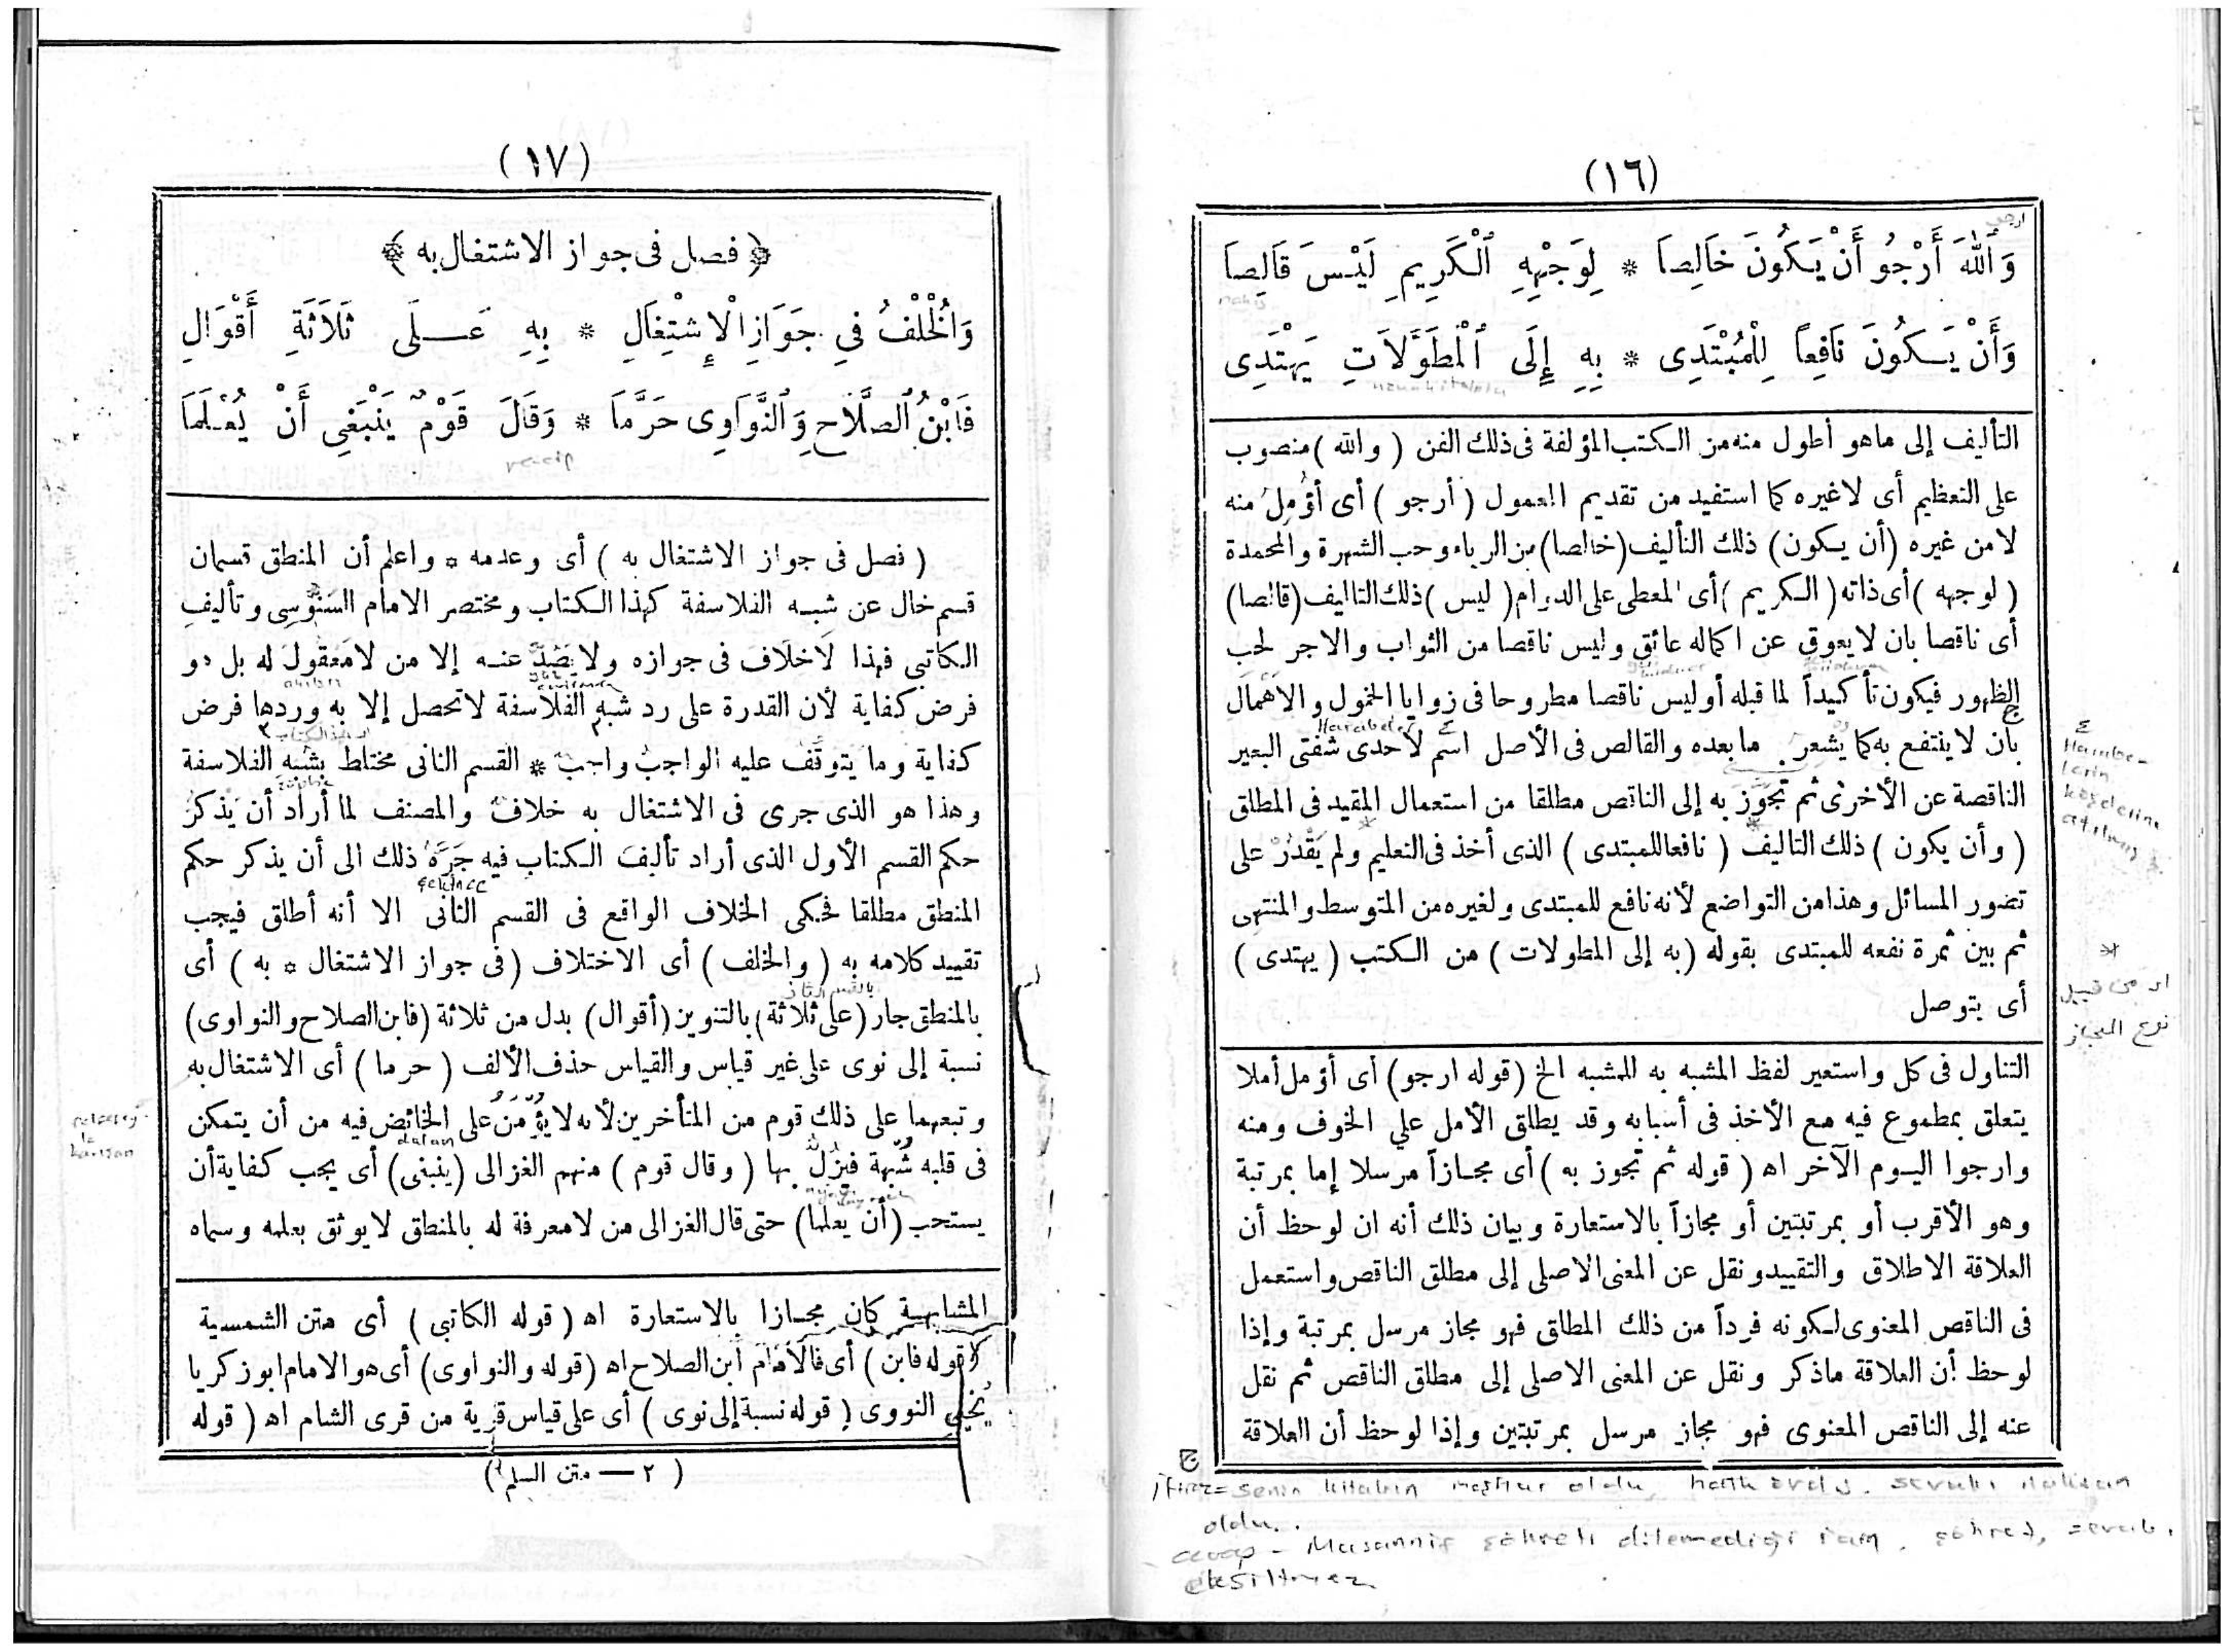 (١٦)
وَٱللهَ أَرْجُو أَنْ يَكُونَ خَالِصَا * لِوَجْهِهِ ٱلْكَرِيمِ لَيْسَ قَالِصَا
وَأَنْ يَكُونَ نَافِعاً لِلْمُبْتَدِى * بِهِ إِلَى ٱلْمُطَوَّلَاتِ يَهْتَدِى
التأليف إلى ماهو أطول منه من الكتب المؤلفة فى ذلك الفن (والله) منصوب
على التعظيم أى لا غيره كما استفيد من تقديم المعمول (أرجو) أى أؤمل منه
لا من غيره (أن يكون) ذلك التأليف (خالصا) من الرياء وحب الشهرة والمحمدة
(لوجهه) أى ذاته (الكريم) أى المعطى على الدوام (ليس) ذلك التاليف (قالصا)
أى ناقصا بان لا يعوق عن اكماله عائق وليس ناقصا من الثواب والاجر لحب
الظهور فيكون تأكيداً لما قبله أو ليس ناقصا مطروحا فى زوايا الخمول والاهمال
بأن لا ينتفع به كما يشعر به ما بعده والقالص فى الأصل اسم لاحدى شفتى البعير
الناقصة عن الأخرى ثم تجوز به إلى الناقص مطلقا من استعمال المقيد فى المطلق
(وأن يكون) ذلك التاليف (نافعا للمبتدى) الذى أخذ فى التعليم ولم يَقْدُرْ على
تصور المسائل وهذا من التواضع لأنه نافع للمبتدى ولغيره من المتوسط والمنتهى
ثم بين ثمرة نفعه للمبتدى بقوله (به إلى المطولات) من الكتب (يهتدى)
أى يتوصل
التناول فى كل واستعير لفظ المشبه به للمشبه الخ (قوله ارجو) أى أؤمل أملا
يتعلق بمطموع فيه مع الأخذ فى أسبابه وقد يطلق الأمل علي الخوف ومنه
وارجوا اليوم الآخر اه (قوله ثم تجوز به) أى مجازاً مرسلا إما بمرتبة
وهو الأقرب أو بمرتبتين أو مجازاً بالاستعارة وبيان ذلك أنه ان لوحظ أن
العلاقة الاطلاق والتقييد ونقل عن المعنى الاصلى إلى مطلق الناقص واستعمل
فى الناقص المعنوى لكونه فرداً من ذلك المطلق فهو مجاز مرسل بمرتبة وإذا
لوحظ أن العلاقة ماذكر ونقل عن المعنى الاصلى إلى مطلق الناقص ثم نقل
عنه إلى الناقص المعنوى فهو مجاز مرسل بمرتبتين وإذا لوحظ أن العلاقة
senin kitabın meşhur oldu,
oldu.
cevap - Musannif şöhreti dilemediği için. şöhret,
eksiltmez
(١٧)
﴿ فصل فى جواز الاشتغال به ﴾
وَٱلْخُلْفُ فِي جَوَازِ الْإِشْتِغَالِ * بِهِ عَلَى ثَلَاثَةِ أَقْوَالِ
فَابْنُ ٱلصَّلَاحِ وَٱلنَّوَاوِى حَرَّمَا * وَقَالَ قَوْمٌ يَنْبَغِى أَنْ يُعْلَمَا
(فصل فى جواز الاشتغال به) أى وعدمه * واعلم أن المنطق قسمان
قسم خال عن شبه الفلاسفة كهذا الكتاب ومختصر الامام السنوسى وتأليف
الكاتبي فهذا لا خلاف فى جوازه ولا يصد عنه إلا من لا معقول له بل هو
فرض كفاية لأن القدرة على رد شبه الفلاسفة لا تحصل إلا به وردها فرض
كفاية وما يتوقف عليه الواجب واجب * القسم الثانى مختلط بشبه الفلاسفة
وهذا هو الذى جرى فى الاشتغال به خلاف والمصنف لما أراد أن يذكر
حكم القسم الأول الذى أراد تأليف الكتاب فيه جَرَّهُ ذلك الى أن يذكر حكم
المنطق مطلقا فحكى الخلاف الواقع فى القسم الثانى الا أنه أطلق فيجب
تقييد كلامه به (والخلف) أى الاختلاف (فى جواز الاشتغال * به) أى
بالمنطق جار (على ثلاثة) بالتنوين (أقوال) بدل من ثلاثة (فابن الصلاح والنواوى)
نسبة إلى نوى على غير قياس والقياس حذف الألف (حرما) أى الاشتغال به
وتبعهما على ذلك قوم من المتأخرين لأنه لا يؤمن على الخائض فيه من أن يتمكن
فى قلبه شبهة فيزل بها (وقال قوم) منهم الغزالى (ينبغى) أى يجب كفاية أن
يستحب (أن يعلما) حتى قال الغزالى من لا معرفة له بالمنطق لا يوثق بعلمه وسماه
المشابهة كان مجازا بالاستعارة اه (قوله الكاتبى) أى متن الشمسية
(قوله فابن) أى فالامام ابن الصلاح اه (قوله والنواوى) أى هو الامام ابو زكريا
يحيى النووى (قوله نسبة إلى نوى) أى على قياس قرية من قرى الشام اه (قوله
(٢ — متن السلم)